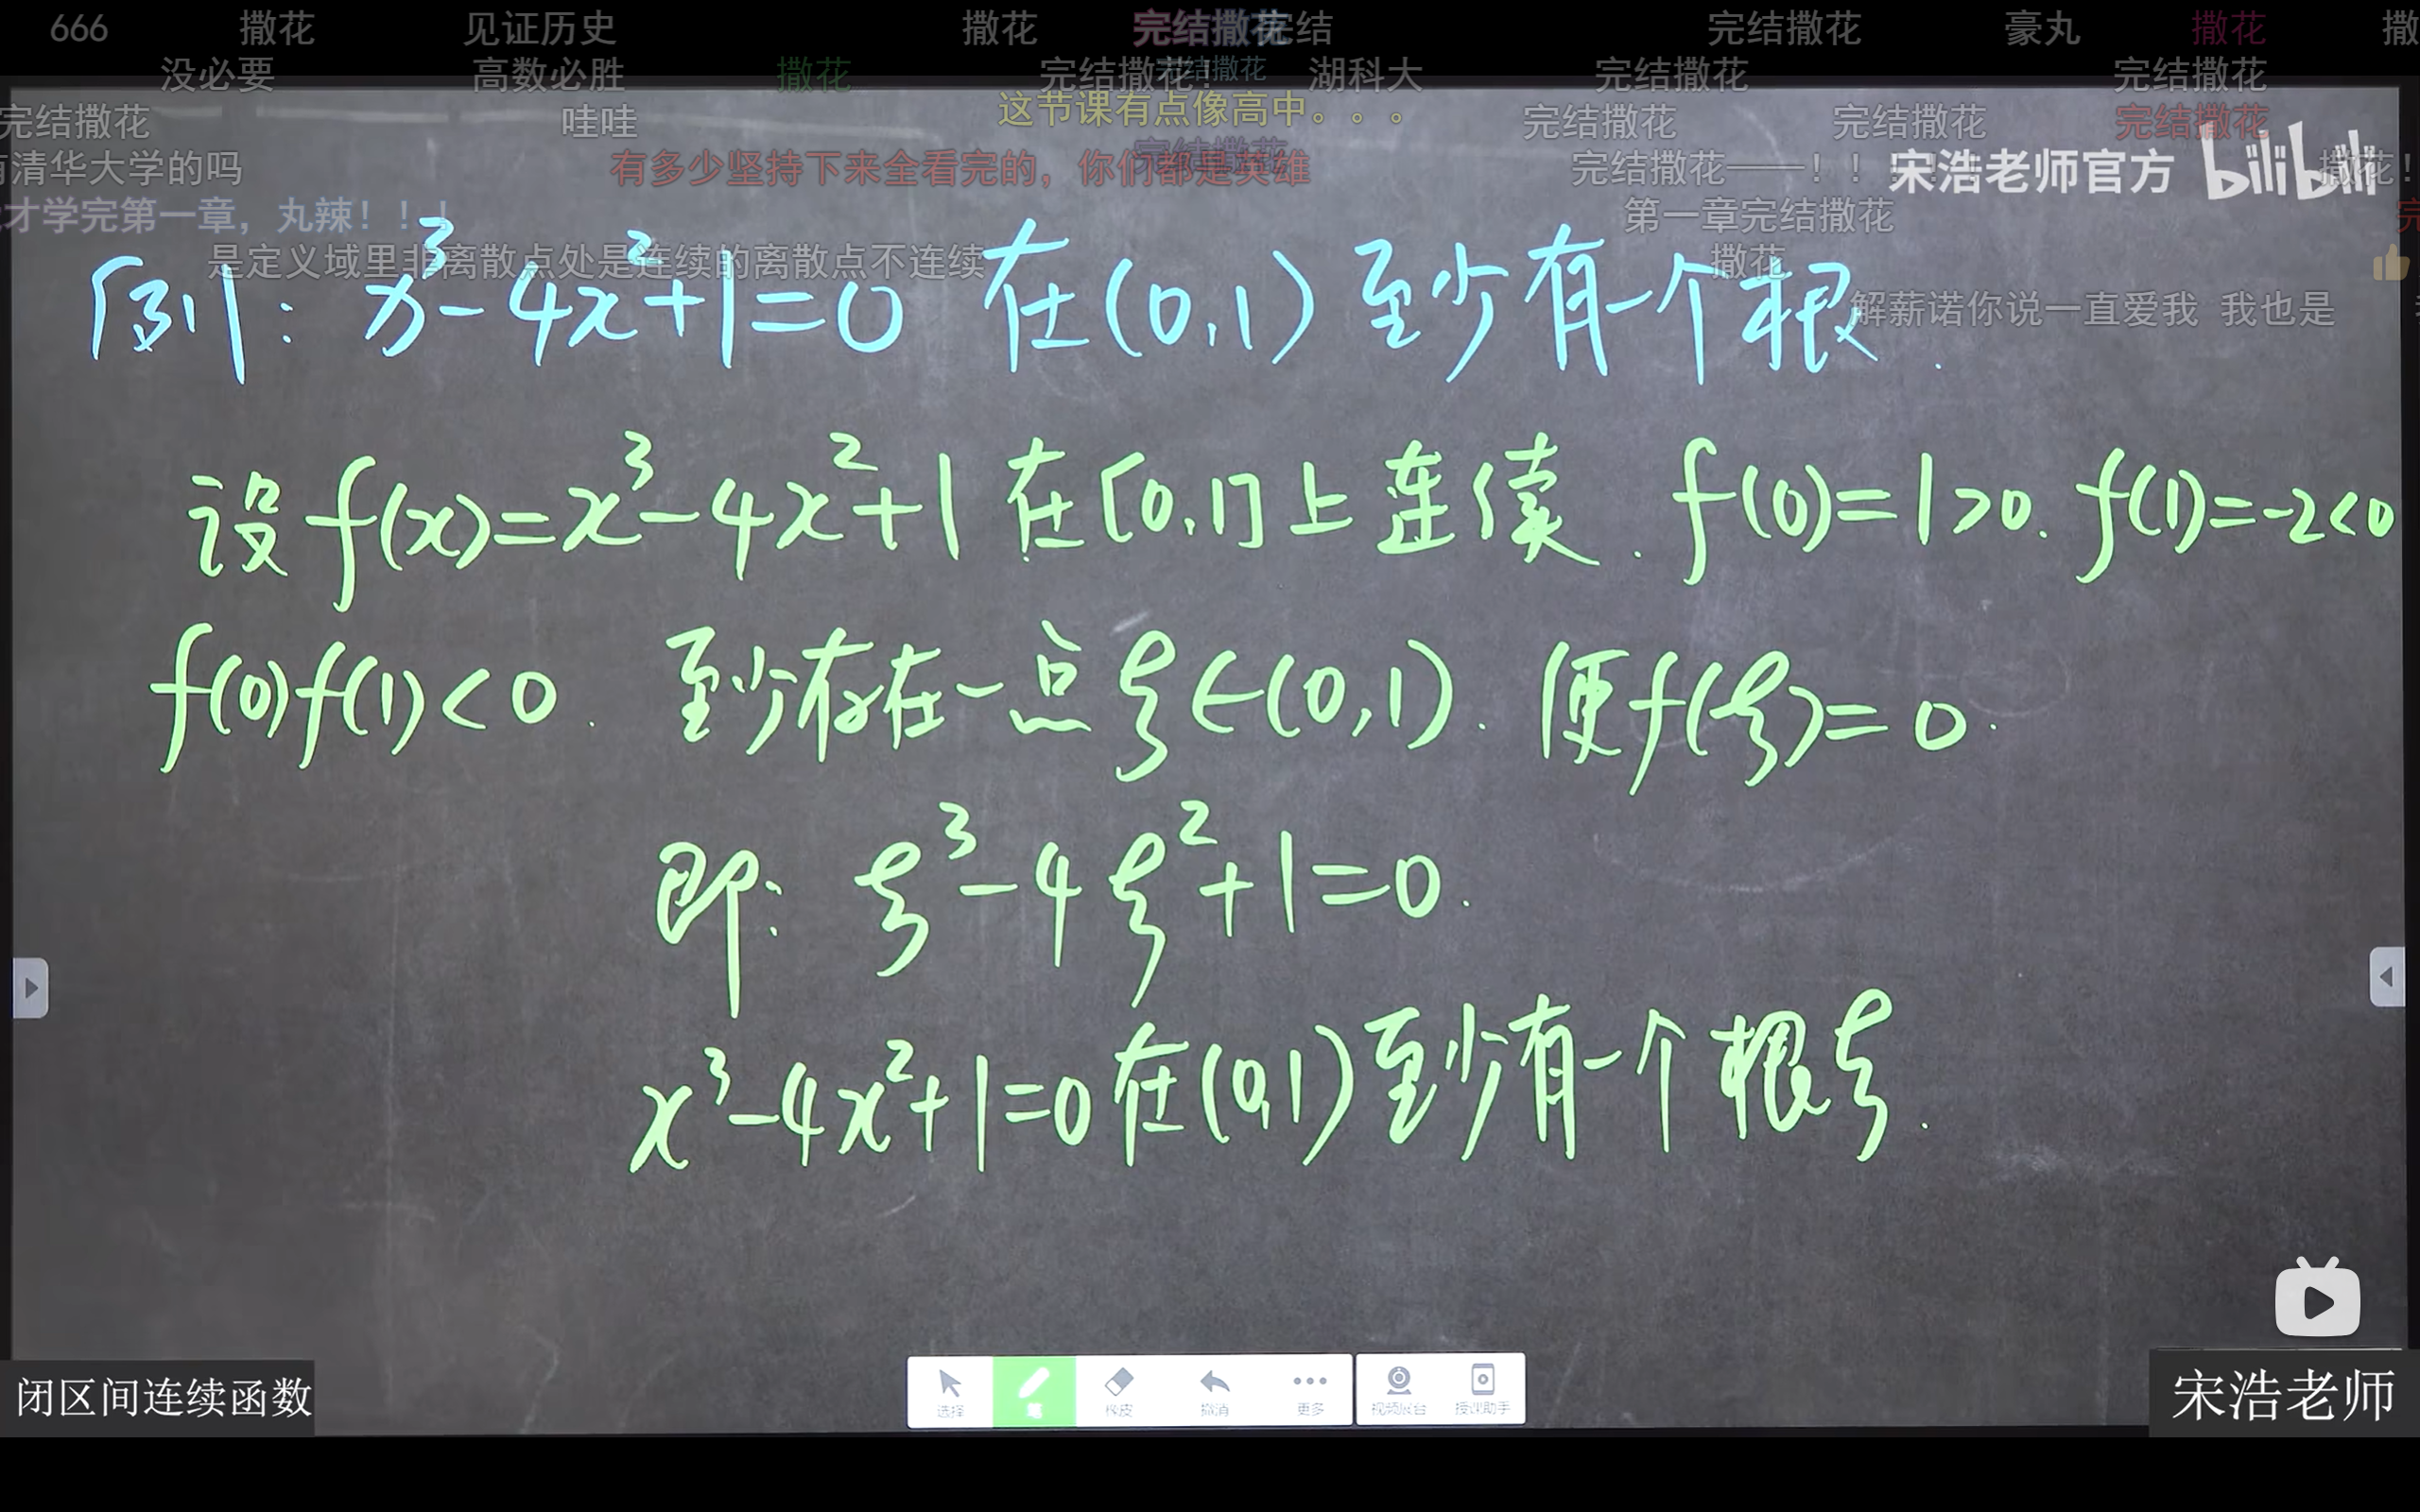 666 撒花 见证历史 撒花 完结撒花 完结 完结撒花 豪丸 撒花 撒
没必要 高数必胜 撒花 完结撒花！ 完结撒花 湖科大 完结撒花 完结撒花
完结撒花 哇哇 这节课有点像高中。。。 完结撒花 完结撒花 完结撒花
清华大学的吗 有多少坚持下来全看完的，你们都是英雄 完结撒花 完结撒花——！！ 宋浩老师官方 bilibili 撒花！
才学完第一章，丸辣！！！ 第一章完结撒花 完
是定义域里非离散点处是连续的离散点不连续 撒花
解薪诺你说一直爱我 我也是
例: x³-4x²+1=0 在(0,1)至少有一个根.
设f(x)=x³-4x²+1在[0,1]上连续. f(0)=1>0. f(1)=-2<0
f(0)f(1)<0. 至少存在一点ξ∈(0,1). 使f(ξ)=0.
即: ξ³-4ξ²+1=0.
x³-4x²+1=0在(0,1)至少有一个根ξ.
选择 笔 橡皮 撤消 更多 视频展台 授课助手
闭区间连续函数
宋浩老师